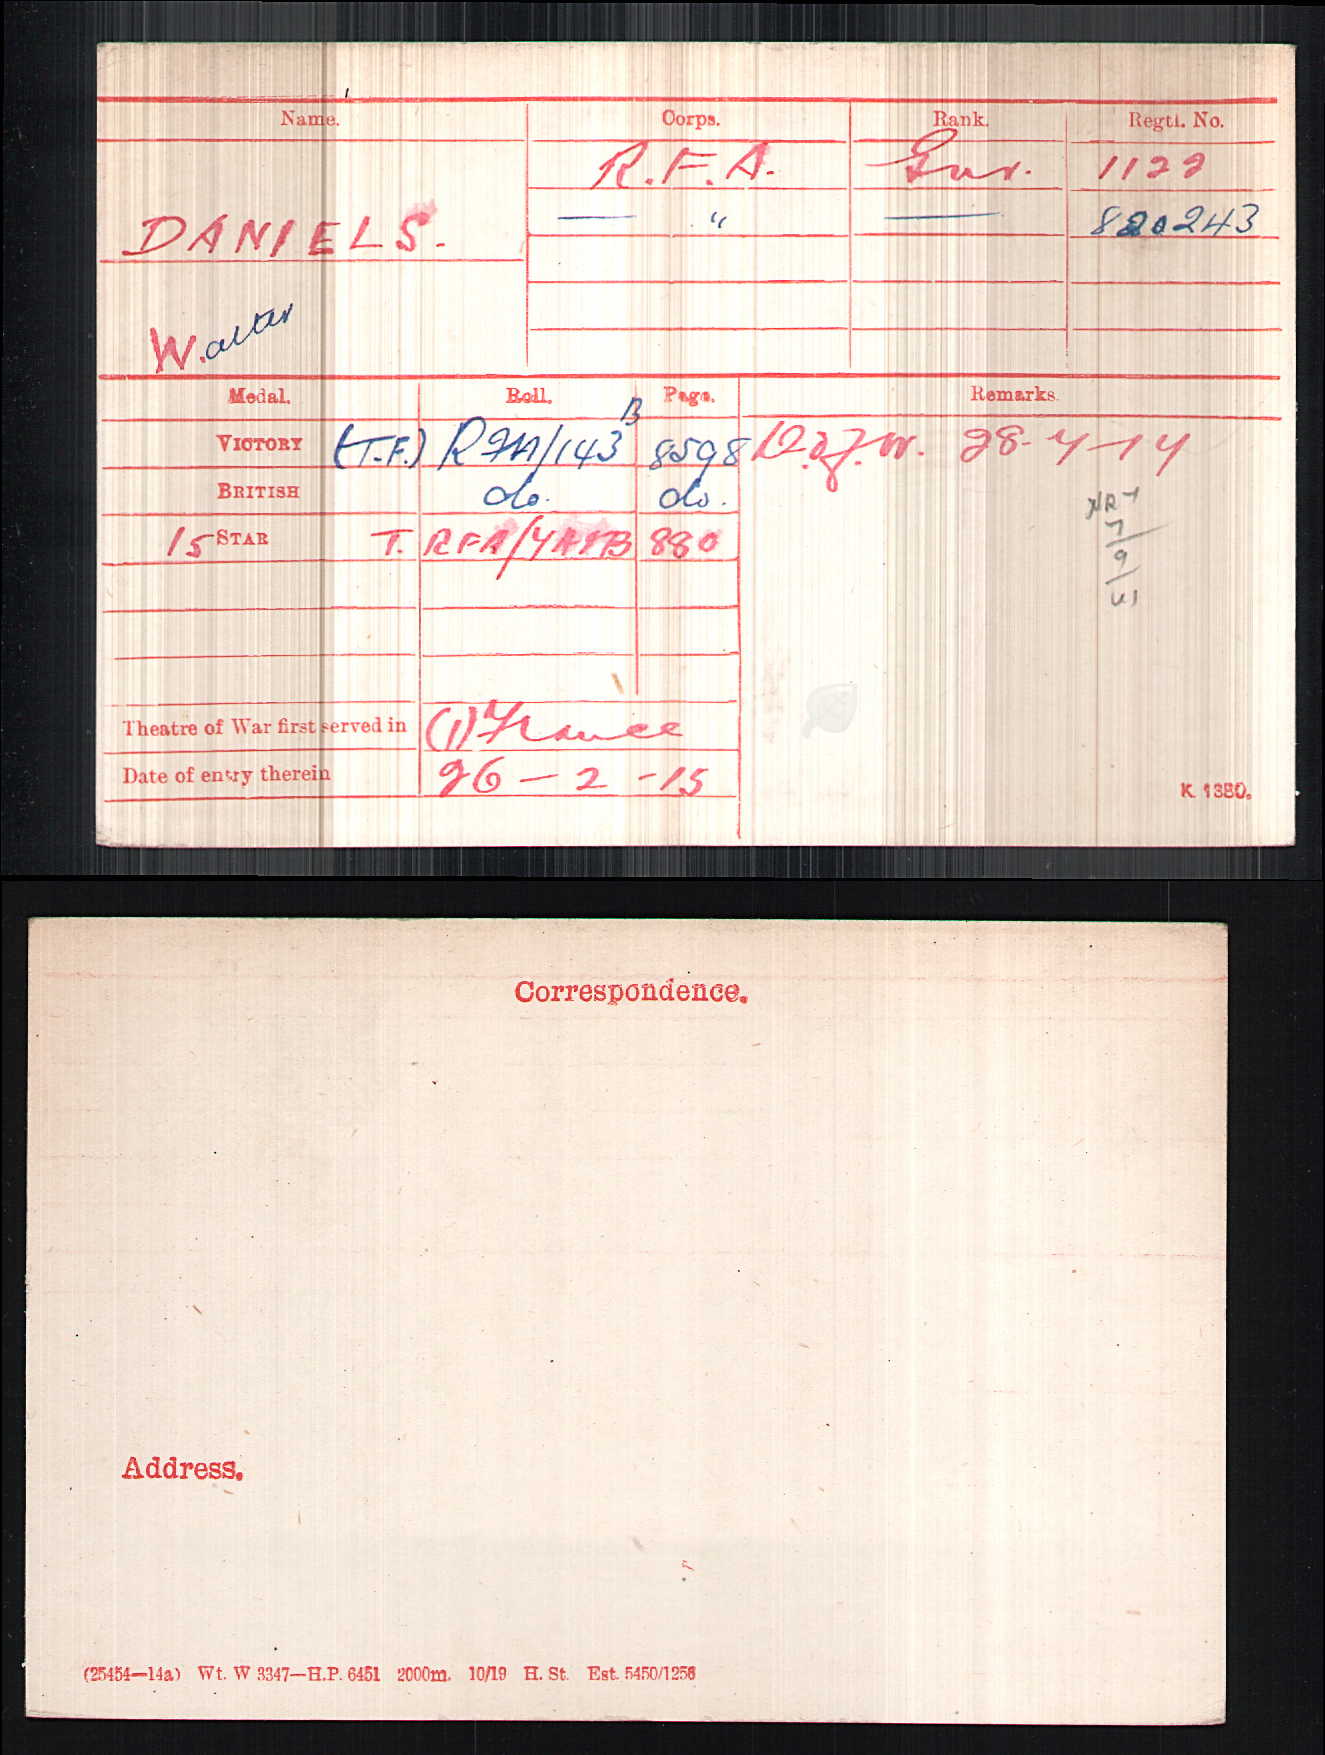 Name. Corps. Rank. Regtl. No.
R.F.A. Gnr. 1122
DANIELS. — " — 820243
W.alter
Medal. Roll. Page. Remarks.
VICTORY (T.F.) RFA/143 B 8598 D. of W. 28-4-17
BRITISH do. do.
15 STAR T. RFA/4A 880
Theatre of War first served in (1) France
Date of entry therein 26 - 2 - 15
K. 1380.
Correspondence.
Address.
(25454—14a) Wt. W 3347—H.P. 6451 2000m. 10/19 H. St. Est. 5450/1256